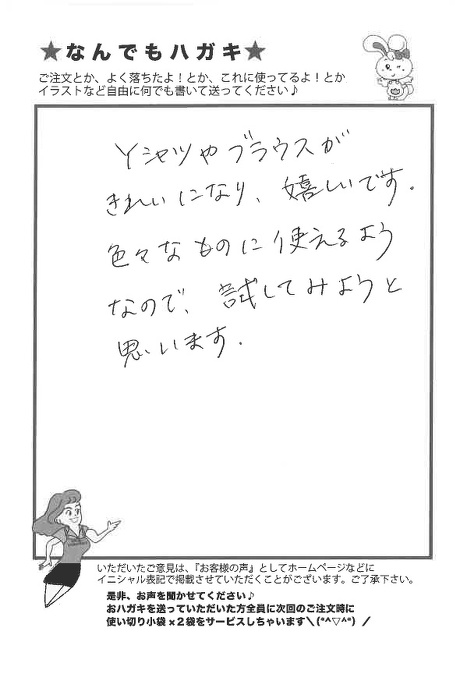 ★なんでもハガキ★
ご注文とか、よく落ちたよ！とか、これに使ってるよ！とか
イラストなど自由に何でも書いて送ってください♪
Yシャツやブラウスが
きれいになり、嬉しいです.
色々なものに使えるよう
なので、試してみようと
思います.
いただいたご意見は、『お客様の声』としてホームページなどに
イニシャル表記で掲載させていただくことがございます。ご了承下さい。
是非、お声を聞かせてください♪
おハガキを送っていただいた方全員に次回のご注文時に
使い切り小袋×２袋をサービスしちゃいます＼(*^▽^*)／